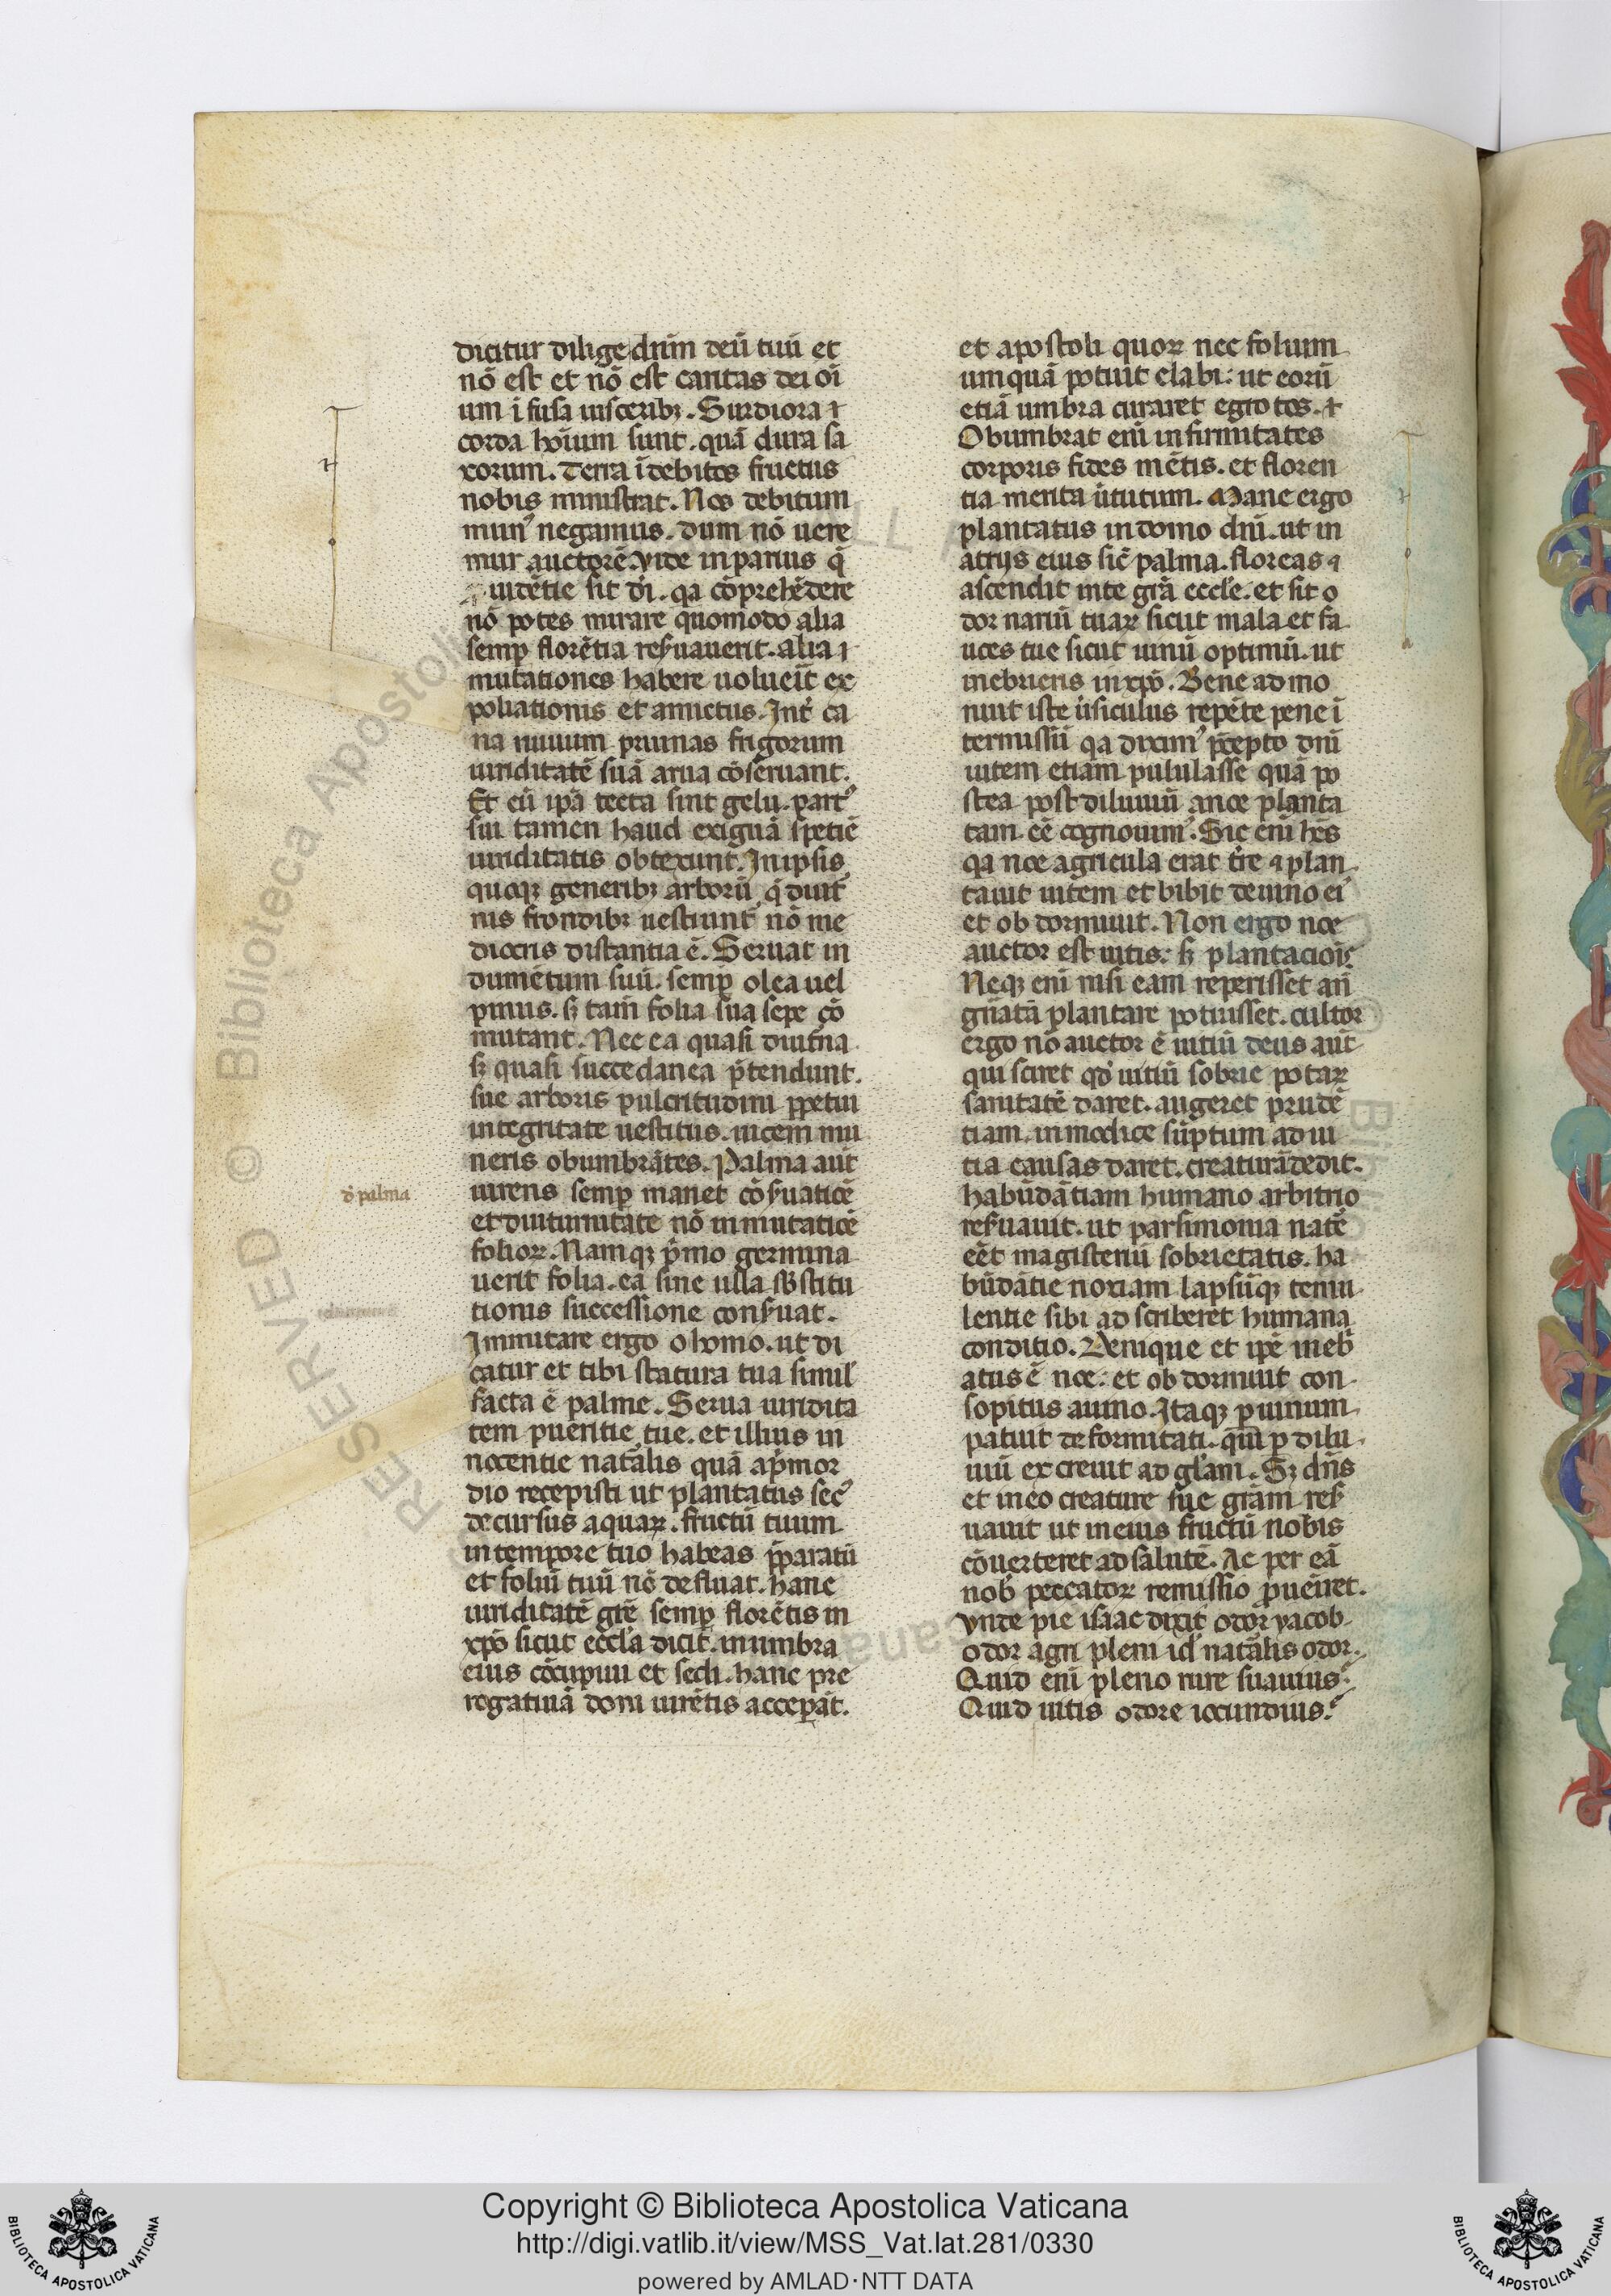 dicitur dilige dnm deū tuū et
nō est et nō est caritas dei oī
um ī fusa uisceribꝫ. Surdiora ⁊
corda hoīum sunt. quā dura sa
xorum. Terra īdebitos fructus
nobis ministrat. Nos debitum
munꝰ negamus. dum nō uere
mur auctorē. vide inparius q̄
uidētie sit di. qa cōprehēdere
nō potes mirare quomodo alia
semꝑ florētia reẜuauerit. alia ⁊
mutationes habere uolueīt ex
poliationis et amictus. Int̄ ca
na niuium pruinas frigorum
uiriditatē suā arua cōseruant.
Et cū ipā tecta sint gelu. partꝰ
sui tamen haud exiguā spetiē
uiriditatis obtexunt. In ipsis
quoqꝫ generibꝫ arborū q̄ diuit̄
nis frondibꝫ uestiunt̄ nō me
diocris distantia ē. Seruat in
dumētum suū. semꝑ olea uel
pinus. sꝫ tam̄ folia sua sepe cō
mutant. Nec ea quasi diut̄na
sꝫ quasi succedanea p̄tendunt.
sue arboris pulcritudini ꝑpetui
integritate uestitus. uicem mu
neris obumbrātes. Palma aut̄
uirens semꝑ manet cōẜuaticē
et diuturnitate nō inmutaticē
folioꝝ. Namqꝫ p̄mo germina
uerit folia. ea sine ulla sb̄stitu
tionis successione conẜuat.
Immutare ergo o homo. ut di
catur et tibi statura tua simil̄
facta ē palme. Serua uiridita
tem pueritie tue. et illius in
nocentie natālis quā ap̄mor
dio recepisti ut plantatus secꝰ
decursus aquaꝝ. fructū tuum
in tempore tuo habeas p̄paratū
et foliū tuū nō defluat. hanc
uiriditatē grē semꝑ florētis in
xp̄o sicut eccl̄a dicit. in umbra
eius cōcupiui et sedi. hanc pre
rogatiuā doni uirētis acceꝑāt.
dꝰ palma
et apostoli quoꝝ nec folium
umquā potuit elabi: ut eorū
etiā umbra curaret egrotos. ⁊
Obumbrat enī infirmitates
corporis fides mētis. et floren
tia merita ūtutum. Mane ergo
plantatus in domo dnī. ut in
atrijs eius sic̄ palma. floreas ⁊
ascendit inte grā eccle. et sit o
dor nariū tuaꝝ sicut mala et fa
uces tue sicut uinū optimū. ut
inebrieris in xp̄o. Bene admo
nuit iste ūsiculus repēte pene ī
termissū qa diximꝰ p̄cepto dnī
uitem etiam pululasse quā po
stea post diluuiū a noe planta
tam eē cognouimꝰ. Sic enī hēs
qa noe agricula erat tr̄e ⁊ plan
tauit uitem et bibit de uino eiꝰ
et ob dormiuit. Non ergo noe
auctor est uitis: sꝫ plantacioīs
Neqꝫ enī nisi eam reperisset añ
gnatā plantare potuisset. cultor
ergo nō auctor ē uitiū deus aut̄
qui sciret qd̄ uitiū sobrie potaꝝ
sanitatē daret. augeret prudē
tiam. inmodice sūptum ad ui
tia causas daret. creaturā dedit.
habūdātiam humano arbitrio
reẜuauit. ut parsimonia natē
eēt magisteriū sobrietatis. ha
būdātie noxiam lapsūqꝫ temu
lentie sibi ad scriberet humana
conditio. Denique et ipē inebꝰ
atus ē noe: et ob dormiuit con
sopitus a uino. Itaqꝫ ꝑ uinum
patuit deformitati. quī ꝑ dilu
uiū excreuit ad gl̄am. Sꝫ dn̄s
et in eo creature sue grām reẜ
uauit ut in euis fructū nobis
cōuerteret ad salutē. Ac per eā
nob̄ peccatoꝝ remissio ꝓueīret.
vnde pie isaac dixit odor yacob
odor agri pleni id̄ natālis odor.
Quid enī pleno rure suauius:
Quid uitis odore iocundius.
Copyright © Biblioteca Apostolica Vaticana
http://digi.vatlib.it/view/MSS_Vat.lat.281/0330
powered by AMLAD·NTT DATA
BIBLIOTECA APOSTOLICA VATICANA
BIBLIOTECA APOSTOLICA VATICANA